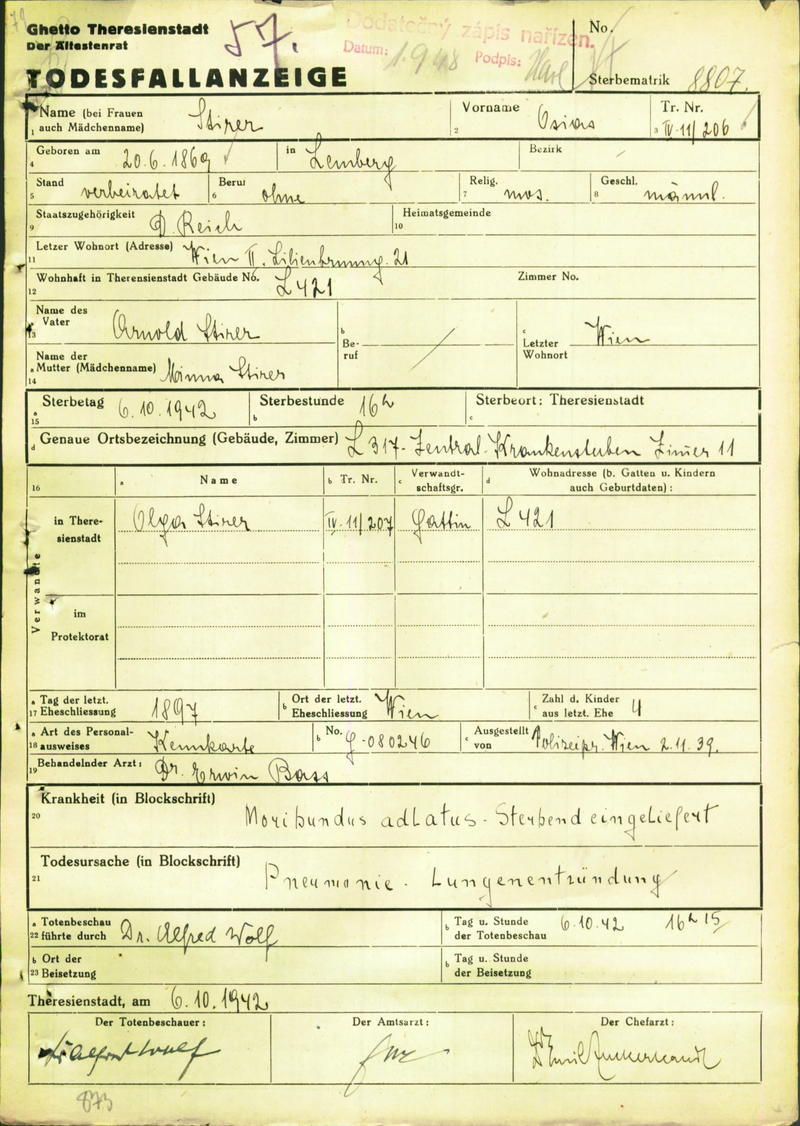 Ghetto Theresienstadt
Der Ältestenrat
57.
Dodatečný zápis nařízen.
Datum: 1948 Podpis: Karl
No.
TODESFALLANZEIGE
Sterbematrik 8807.
Name (bei Frauen Stirer Vorname Osias Tr. Nr.
1 auch Mädchenname) 2 3 IV-11/206
Geboren am 20.6.1869 in Lemberg Bezirk
4
Stand verheiratet Beruf ohne Relig. mos. Geschl. männl.
5 6 7 8
Staatszugehörigkeit D. Reich Heimatsgemeinde
9 10
Letzer Wohnort (Adresse) Wien II. Lilienbrunng. 21
11
Wohnhaft in Theresienstadt Gebäude No. L 421 Zimmer No.
12
Name des
Vater Arnold Stirer
13
b Be-ruf
c Letzter Wohnort Wien
Name der
a Mutter (Mädchenname) Minna Stirer
14
a Sterbetag 6.10.1942 b Sterbestunde 16h c Sterbeort: Theresienstadt
15
d Genaue Ortsbezeichnung (Gebäude, Zimmer) L 317-Zentral-Krankenstuben Zimer 11
16 a Name b Tr. Nr. c Verwandt-schaftsgr. d Wohnadresse (b. Gatten u. Kindern auch Geburtdaten):
Verwandte
in There-sienstadt Olga Stirer IV-11/207 Gattin L 421
im
Protektorat
a Tag der letzt. 1897 b Ort der letzt. Wien c Zahl d. Kinder 4
17 Eheschliessung Eheschliessung aus letzt. Ehe
a Art des Personal- Kennkarte b No. J-080246 c Ausgestellt Polizeipr. Wien 2.11.39.
18 ausweises von
19 Behandelnder Arzt: Dr. Erwin Bass
Krankheit (in Blockschrift)
20 Moribundus adlatus - Sterbend eingeliefert
Todesursache (in Blockschrift)
21 Pneumonie - Lungenentzündung
a Totenbeschau Dr. Alfred Wolf b Tag u. Stunde 6.10.42 16h 15
22 führte durch der Totenbeschau
b Ort der b Tag u. Stunde
23 Beisetzung der Beisetzung
Theresienstadt, am 6.10.1942
Der Totenbeschauer: Der Amtsarzt: Der Chefarzt:
Dr Alfred Wolf
873